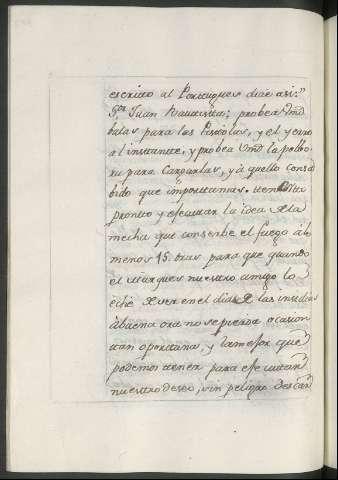 escrito al Portugues dice asi:"
S.or Juan Bautista; probea Vmd
balas para las Pistolas, y el yerro
al instante, y probea Vmd la polbo-
ra para Cargarlas, y aquello consa
bido que importa mas.
pronto y efecutar la idea de la
mecha que conserbe el fuego à lo
menos 15. oras para que quando
el Marques nuestro amigo lo
eche de ver en el dia de las insidias
àbuena ora no se pierda ocasion
tan oportuna, y la mejor que
podemos tener para efecutar
nuestro deseo, sin peligro